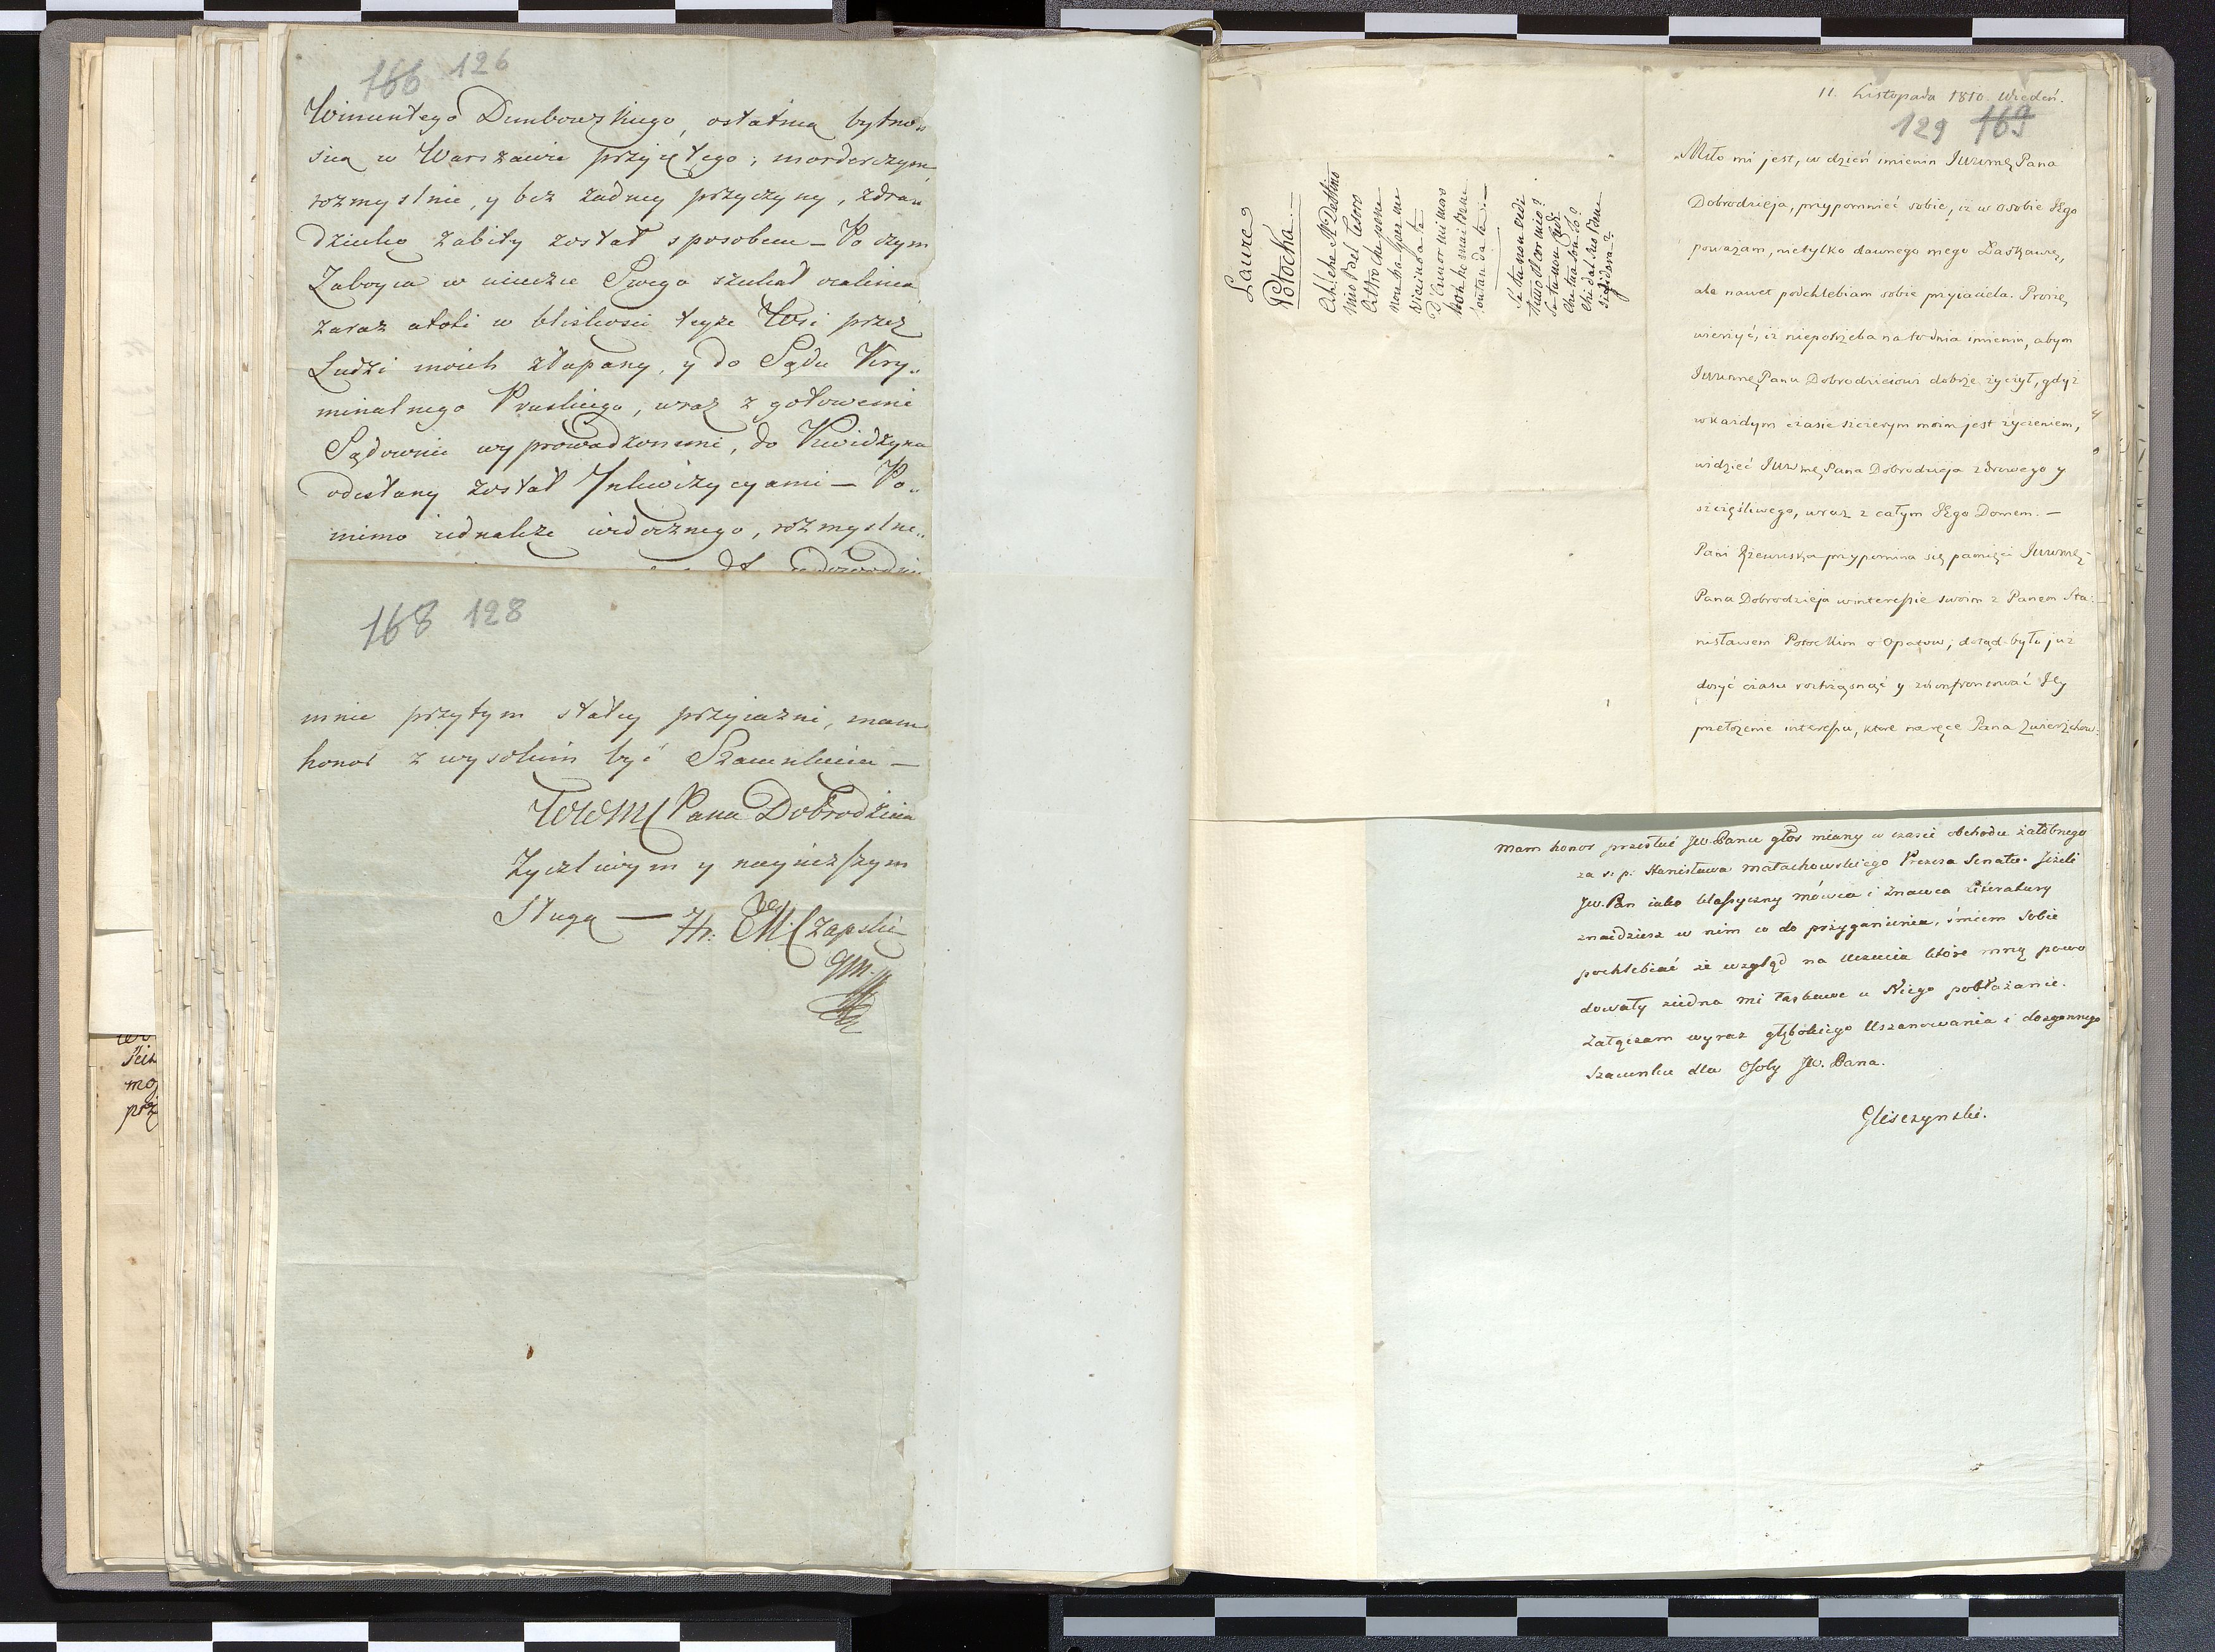 166 126
Winuntego Dembowskiego, ostatnią bytno„
ścią w Warszawie przyiętego; morderczym,
rozmyslnie, y bez żadney przyczyny, zdra„
dziecko zabity został sposobem — Po czym
Zaboyca w uciecze Swego szukał ocalenia
zaraz atoli w bliskosci teyże Wsi przez
Ludzi moich złapany, y do Sądu Kry„
minalnego Pruskiego, wraz z gotowemi
Sądownie wyprowadzonemi, do Kwidzyna
odesłany został Inkwizycyami — Po„
mimo iednakże widocznego, rozmyslne„
168 128
mnie przytym stałey przyiazni, mam
honor z wysokim być Szacunkiem —
JWWM Pana Dobrodzieia
Życzliwym y nayniższym
Sługą — Hr: M. Czapski
11. Listopada 1810. Wiedeń.
129 169
Miło mi jest, w dzień imienin JWWmę Pana
Dobrodzieja, przypomnieć sobie, iż w osobie Jego
poważam, nietylko dawnego mego Łaskawcę,
ale nawet podchlebiam sobie przyiaciela. Proszę
wierzyć, iż niepotrzeba na to dnia imienin, abym
JWWmę Panu Dobrodzieiowi dobrze życzył, gdyż
w każdym czasie szczerym moim jest życzeniem,
widzieć JWWmę Pana Dobrodzieja zdrowego y
szczęśliwego, wraz z całym Jego Domem. —
Pani Rzewuska przypomina się pamięci JWWmę
Pana Dobrodzieja w interessie swoim z Panem Sta:
nisławem Potockim o Opatow; dotąd było już
dosyć czasu roztrząsnąć y skonfrontować Jey
przełożenie interessu, które na ręce Pana Zwierzchow:
Laure
Potocka. —
Ah! che il Destino
mio bel tesoro
non ha sper me
vicino a te
D'amor mi moro
non ho mai bene
lontan da te: —
Se tu non vedi
tutto il cor mio?
Se tu non credi
Mam honor przesłać JW. Panu głos miany w czasie obchodu żałobnego
za ś. p. Stanisława Małachowskiego Prezesa Senatu. Jeżeli
JW. Pan iako klassyczny mówca i znawca Literatury
znaidziesz w nim co do przyganienia, śmiem sobie
pochlebiać że wzgląd na uczucia które mną powo
dowały ziedna mi łaskawe u Niego pobłażanie.
Załączam wyraz głębokiego Uszanowania i dozgonnego
Szacunku dla Osoby JW. Pana.
Gliszczynski.